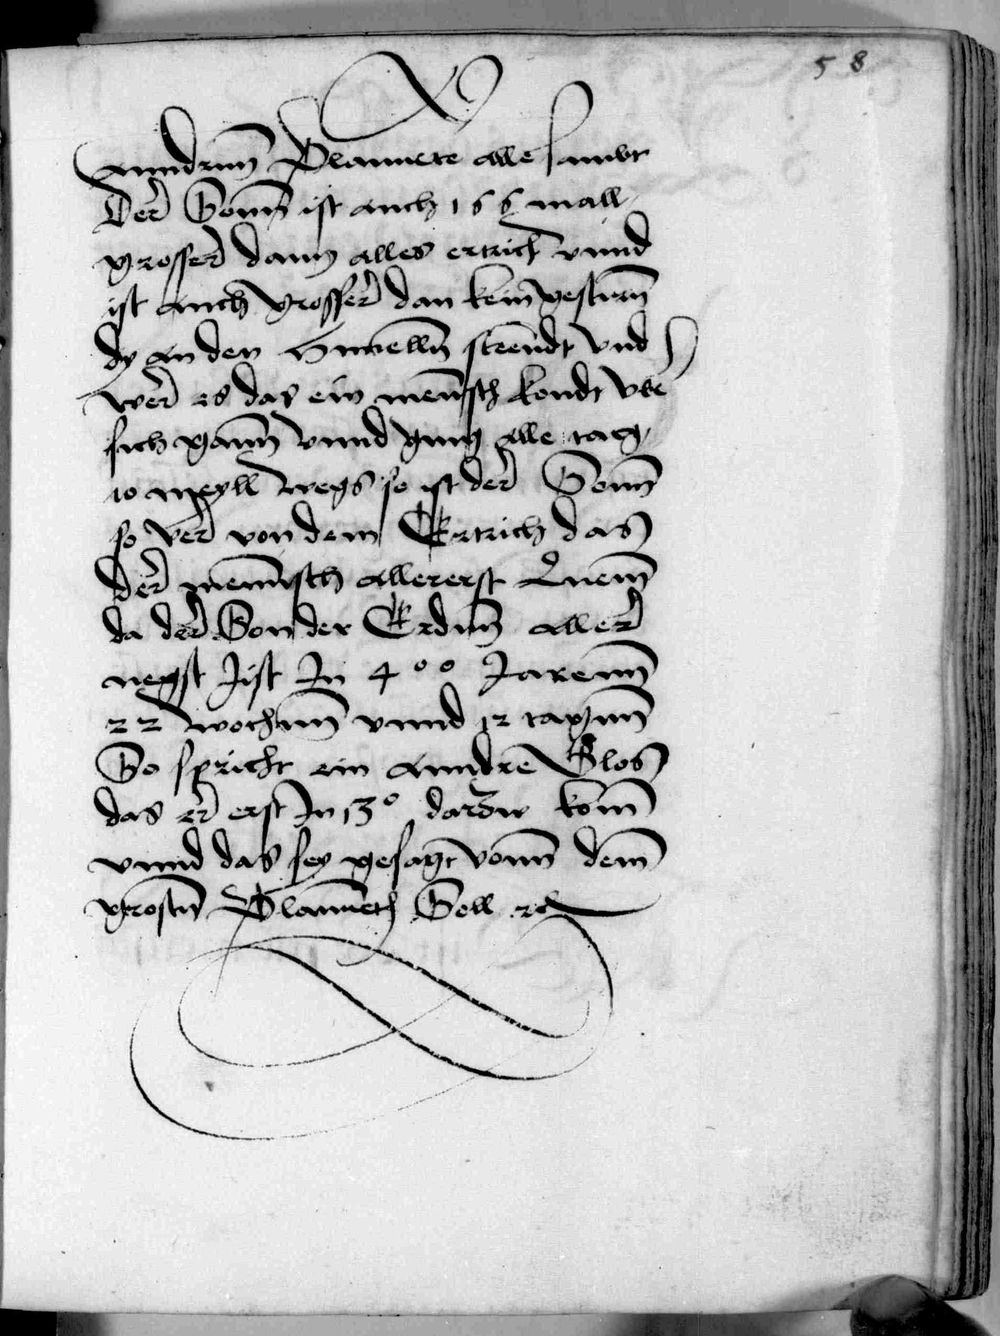 58
anndrnn Plannete alle sambt
Der Sonn ist auch 166 mall
grosser dann alles ertrich vnnd
ist auch grosser dan kein gestirn
dy an den Himelln steendt vnd
wer es das ein mennsch kondt vber
sich gann vnnd ginng alle tag
10 meyll wegs so ist der Sonn
so ver von dem Ertrich das
der mennsch allererst Quem
da der Son der Erdnn aller
negst Jist In 400 Jarenn
22 wochnn vnnd 12 tagnn
So spricht ein anndre Glos
das er erst In 130 darzw kom
vnnd das sey gesagt vonn dem
grostn Planneth Soll etc